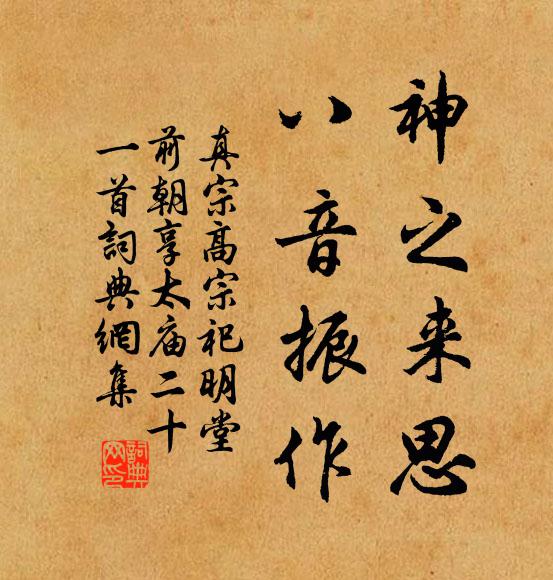 神之来思
八音振作
真宗高宗祀明堂
前朝享太庙二十
一首詞典網集
詞典網印